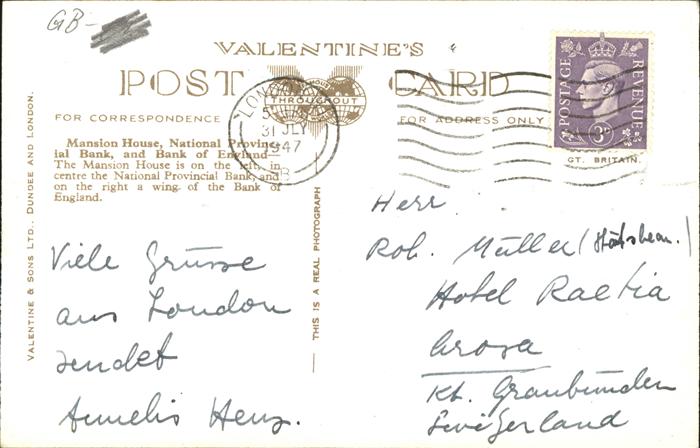 GB-
VALENTINE'S
POST CARD
THROUGHOUT
FOR CORRESPONDENCE
FOR ADDRESS ONLY
LONDON
31 JLY
1947
POSTAGE REVENUE
3D
GT. BRITAIN.
Mansion House, National Provinc-
ial Bank, and Bank of England
The Mansion House is on the left, in
centre the National Provincial Bank, and
on the right a wing of the Bank of
England.
VALENTINE & SONS LTD., DUNDEE AND LONDON.
THIS IS A REAL PHOTOGRAPH
Viele Grüsse
aus London
sendet
Annelis Henz.
Herr
Rob. Müller
Hotel Raetia
Arosa
Kt. Graubünden
Switzerland